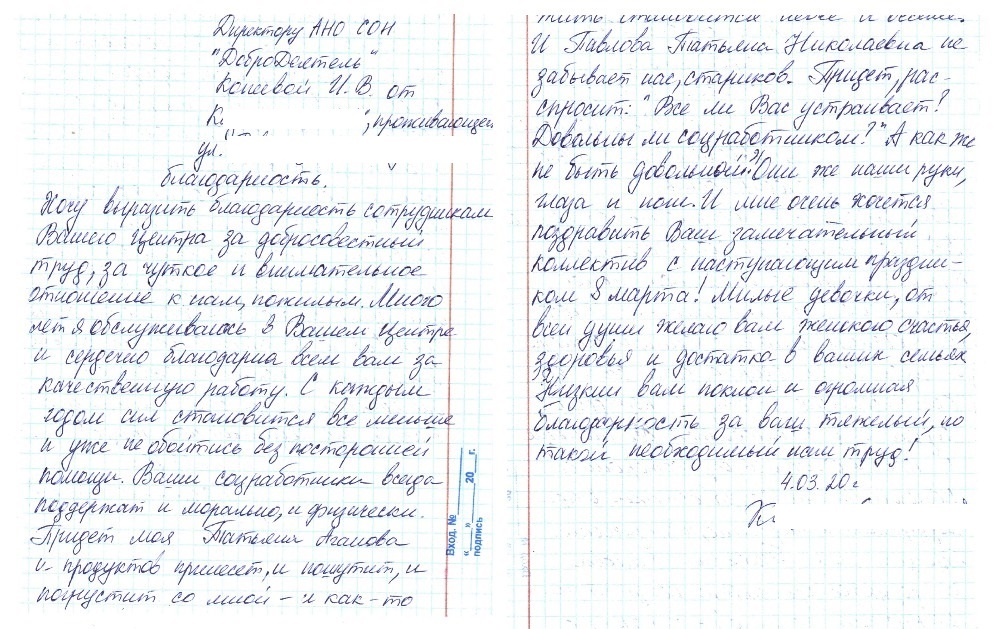 Директору АНО СОН
"ДоброДеятель"
Коневой И.В. от
К
, проживающей
ул.
благодарность.
Хочу выразить благодарность сотрудникам
Вашего Центра за добросовестный
труд, за чуткое и внимательное
отношение к нам, пожилым. Много
лет я обслуживаюсь в Вашем Центре
и сердечно благодарна всем вам за
качественную работу. С каждым
годом сил становится все меньше
и уже не обойтись без посторонней
помощи. Ваши соцработники всегда
поддержат и морально, и физически.
Придет моя Татьяна Агапова
и продуктов принесет, и пошутит, и
погрустит со мной - и как-то
Вход. №
" " 20 г.
подпись
жить становится легче и
И Павлова Татьяна Николаевна не
забывает нас, стариков. Придет, рас-
спросит: "Все ли Вас устраивает?
Довольны ли соцработником?" А как же
не быть довольной?! Они же наши руки,
глаза и ноги. И мне очень хочется
поздравить Ваш замечательный
коллектив с наступающим праздни-
ком 8 марта! Милые девочки, от
всей души желаю вам женского счастья,
здоровья и достатка в ваших семьях
Низкий вам поклон и огромная
благодарность за ваш тяжелый, но
такой необходимый нам труд!
4.03.20г
К